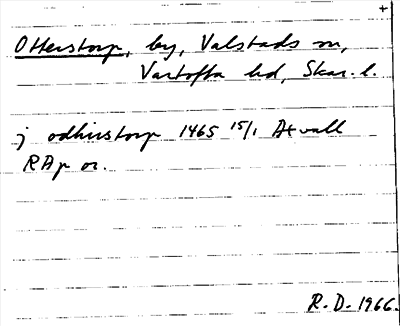 +
Otterstorp, by, Valstads sn,
Vartofta hd, Skar. l.
j odhirstorp 1465 15/1 Axvall
RAp or.
R.D. 1966.